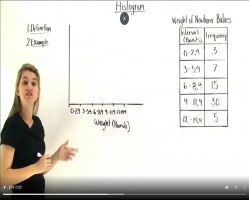 Histogram
1. Definition
2. Example
Weight of Newborn Babies
Interval (Pounds) Frequency
0-2.9 3
3-5.9 7
6-8.9 15
9-11.9 30
12-14.9 5
0-2.9 3-5.9 6-8.9 9-11.9 12-14.9
Weight (Pounds)